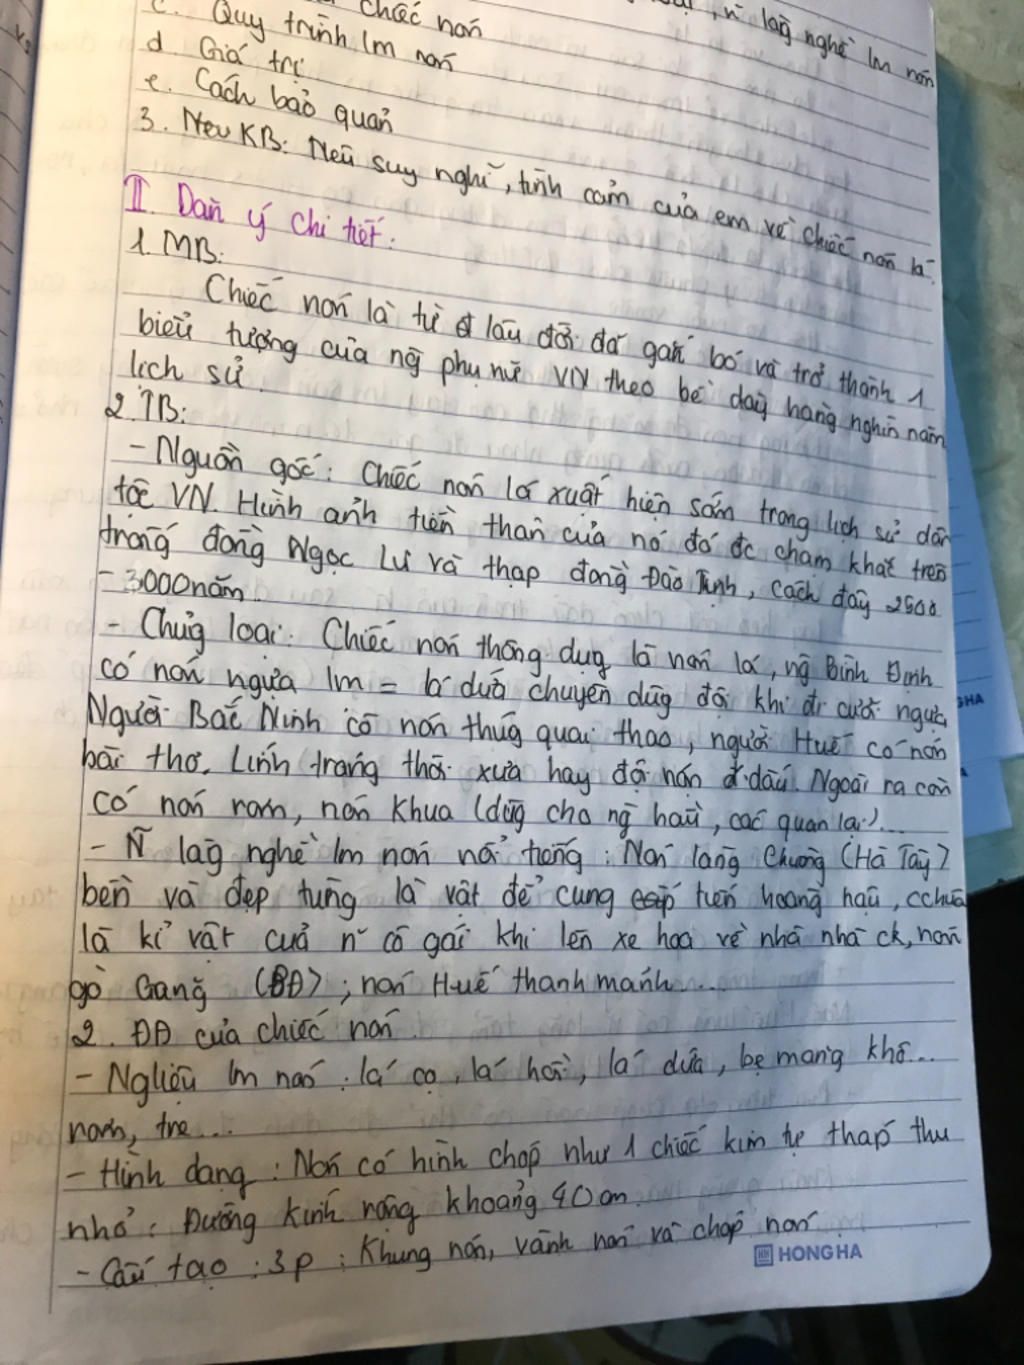 chiếc nón
, n lag nghề lm nón
c. Quy trình lm nón
d. Giá trị
e. Cách bảo quản
3. New KB: Nêu suy nghĩ, tình cảm của em về chiếc nón lá.
II. Dàn ý chi tiết:
1. MB:
Chiếc nón là từ lâu đời đã gắn bó và trở thành 1
biểu tượng của ng phụ nữ VN theo bề dày hàng nghìn năm
lịch sử.
2. TB:
- Nguồn gốc: Chiếc nón lá xuất hiện sớm trong lịch sử dân
tộc VN. Hình ảnh tiền thân của nó đã đc chạm khắc trên
trống đồng Ngọc Lư và thạp đồng Đào Thịnh, cách đây 2500
- 3000 năm.
- Chủg loại: Chiếc nón thông dụg là nón lá, ng Bình Định
có nón ngựa lm = lá dứa chuyên dùg đội khi đi cưỡi ngựa,
Người Bắc Ninh có nón thúg quai thao, người Huế có nón
bài thơ. Lính tráng thời xưa hay đội nón dấu. Ngoài ra còn
có nón rơm, nón khua (dùg cho ng hầu, các quan lại)...
- Ñ làg nghề lm nón nổi tiếng: Nón làng Chuông (Hà Tây)
bền và đẹp từng là vật để cung tiến hoàng hậu, cchúa
là kỉ vật của ñ cô gái khi lên xe hoa về nhà nhà ck, nón
gò Găng (BĐ); nón Huế thanh mảnh...
2. ĐĐ của chiếc nón.
- Ngliệu lm nón: lá cọ, lá hồi, lá dứa, bẹ măng khô...
rơm, tre...
- Hình dạng: Nón có hình chóp như 1 chiếc kim tự tháp thu
nhỏ: Đường kính rộng khoảng 40cm
- Cấu tạo: 3p: Khung nón, vành nón và chóp nón
HONG HA
HA